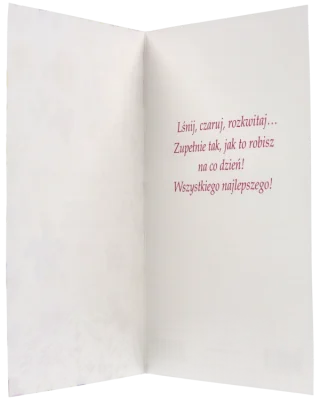 Lśnij, czaruj, rozkwitaj…
Zupełnie tak, jak to robisz
na co dzień!
Wszystkiego najlepszego!